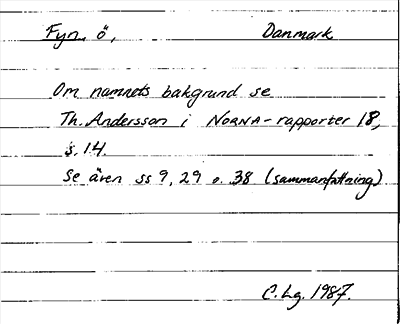 Fyn, ö, Danmark
Om namnets bakgrund se
Th. Andersson i NORNA-rapporter 18,
s. 14.
Se även ss 9, 29 o. 38 (sammanfattning)
C. Lg. 1987.